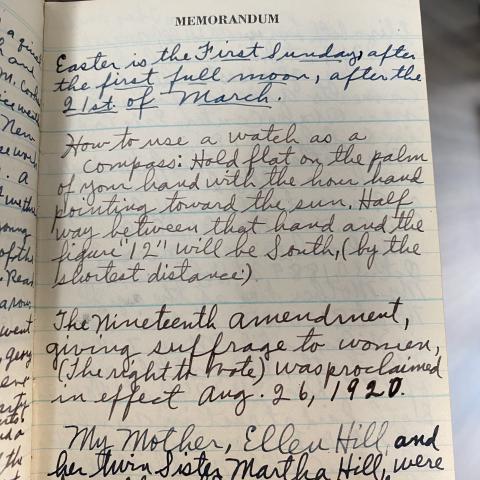 MEMORANDUM
Easter is the First Sunday, after
the first full moon, after the
21st. of March.
How to use a watch as a
compass: Hold flat on the palm
of your hand with the hour hand
pointing toward the sun. Half
way between that hand and the
figure "12" will be South, (by the
shortest distance).
The Nineteenth amendment,
giving suffrage to women,
(The right to vote) was proclaimed
in effect Aug. 26, 1920.
My Mother, Ellen Hill, and
her twin Sister Martha Hill, were